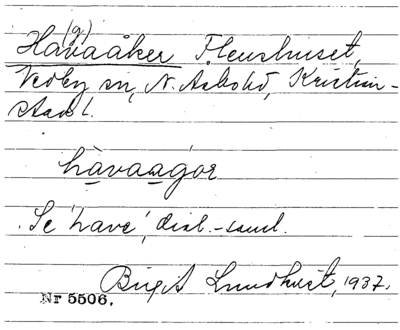 Hava(g)åker Fleushuset,
Vedby sn, N. Åsbo hd, Kristian-
stads l.
hàvaagór
Se 'have', dial.-saml.
Birgit Lundkvist, 1937.
Nr 5506.